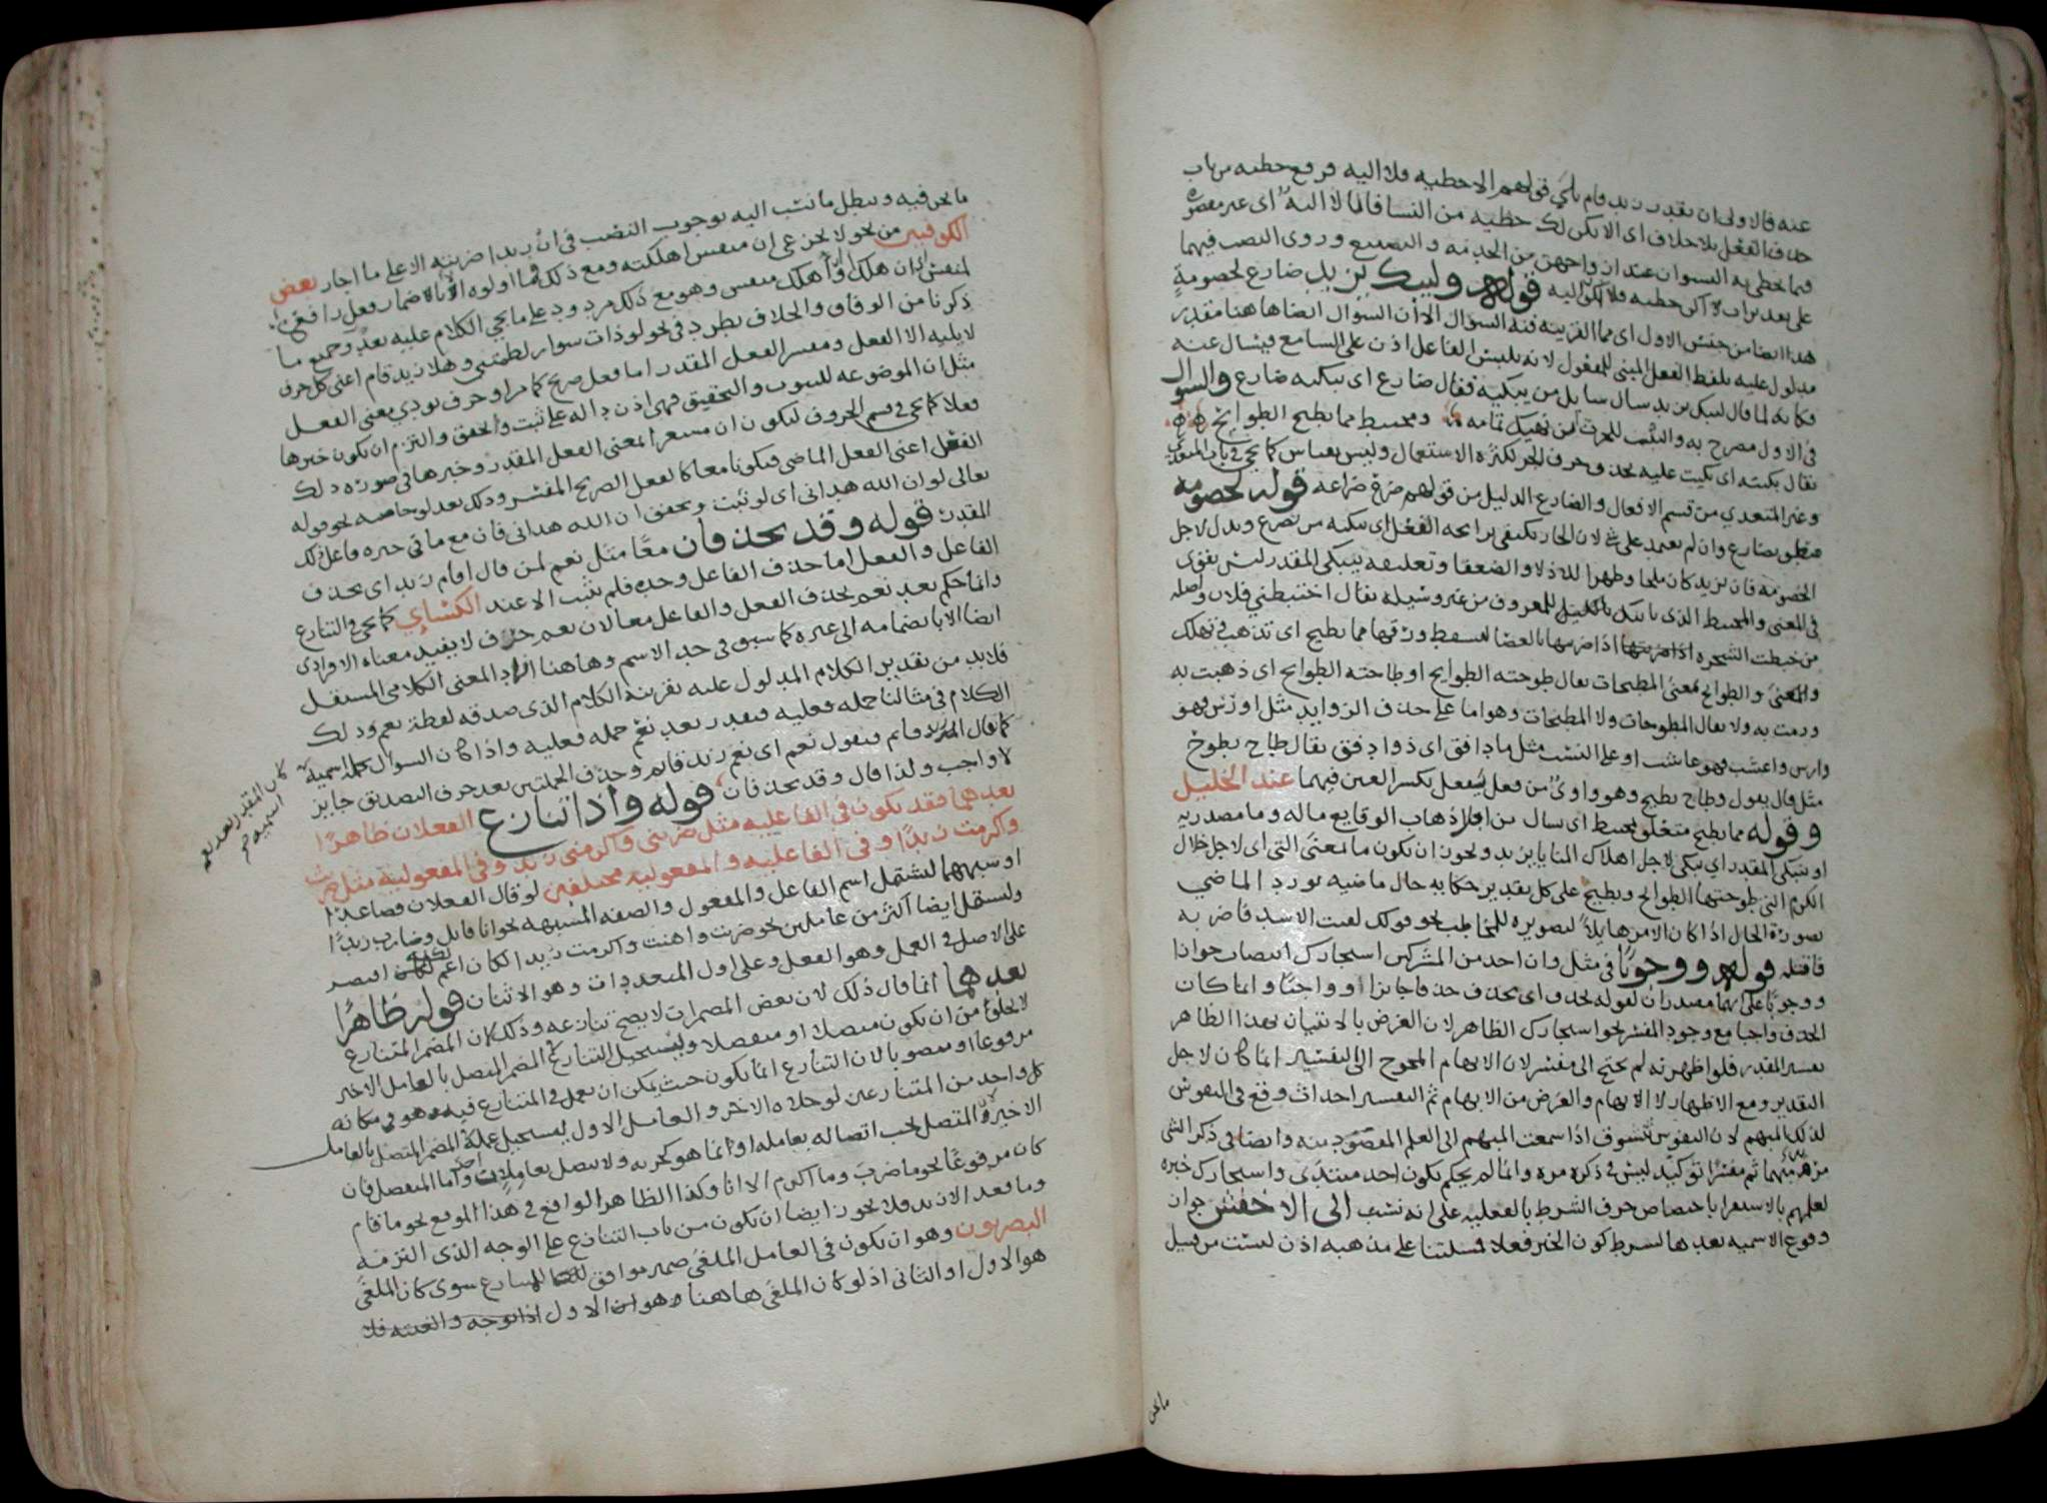 عنه فالاولى ان يقدر زيد قام باي قولهم الا حظيه فلا اليه فرفع حظيه من باب
حذف الفعل بلا خلاف اى الا يكن لك حظيه من النسا فانا لا اليه اى غير مقصره
فيما يحظى به النسوان عند ازواجهن من الخدمه والتصنع وروى النصب فيهما
على تقدير ان لا اكن حظيه فلا اكون اليه قوله وليبك يزيد ضارع لخصومة
هذا ايضا من جنس الاول اى مما القرينه فيه السوال الا ان السوال ايضا هاهنا مقدر
مدلول عليه بلفظ الفعل المبنى للمفعول لانه يلبس الفاعل اذن على السامع فيسال عنه
فكانه لما قال ليبك يزيد سال سايل من يبكيه فقال ضارع اى يبكيه ضارع والسوال
فى الاول مصرح به والبيت للحرث بن نهيك تمامه ومختبط مما تطيح الطوايح
يقال بكيته اى بكيت عليه بحذف حرف الجر لكثرة الاستعمال وليس بقياس كما يجى فى باب المتعدى
وغير المتعدي من قسم الافعال والضارع الذليل من قولهم ضرع ضراعه قوله لخصومه
متعلق بضارع وان لم يعتمد على شى لان الجار يكتفى برايحه الفعل اى يبكيه من يضرع ويذل لاجل
الخصومه فان يزيد كان ملجا وظهرا للاذلا والضعفا وتعليقه بيبكى المقدر ليس بقوى
فى المعنى والمختبط الذى ياتيك بالليل للمعروف من غير وسيله يقال اختبطني فلان واصله
من خبطت الشجره اذا ضربتها بالعصا ليسقط ورقها مما تطيح اى تذهب وتهلك
والمعنى والطوايح بمعنى المطيحات يقال طوحته الطوايح او طاحته الطوايح اى ذهبت به
ورمت به ولا يقال المطوحات ولا المطيحات وهو اما على حذف الزوايد مثل اورس فهو
وارس واعشب فهو عاشب او على النسب مثل ما دافق اى ذو ادفق يقال طاح يطوح
مثل قال يقول وطاح يطيح وهو واوى من فعل يفعل بكسر العين فيهما عند الخليل
وقوله مما تطيح متعلق بمختبط اى سال من اجل اذهاب الوقايع ماله وما مصدريه
او بيبكى المقدر اي يبكى لاجل اهلاك المنايا يزيد ويجوز ان يكون ما بمعنى التى اى لاجل خلال
الكرم التى طوحتها الطوايح وتطيح على كل تقدير حكايه حال ماضيه يورد الماضي
بصورة الحال اذا كان الامر هايلا لتصويره للمخاطب نحو قولك لقيت الاسد فاضربه
فاقتله قوله ووجوبا فى مثل وان احد من المشركين استجارك انتصاب جوازا
ووجوبا على انهما مصدران لقوله يحذف اى يحذف حذفا جايزا او واجبا وانما كان
الحذف واجبا مع وجود المفسر نحو استجارك الظاهر لان الغرض بالاتيان بهذا الظاهر
تفسير المقدر فلو اظهرته لم تحتج الى مفسر لان الابهام المحوج الى التفسير انما كان لاجل
التقدير ومع الاظهار لا ابهام والغرض من الابهام ثم التفسير احداث وقع فى النفوس
لذلك المبهم لان النفوس تتشوف اذا سمعت المبهم الى العلم المقصود منه وايضا فى ذكر الشى
مرتين مبهما ثم مفسرا توكيد ليس فى ذكره مره وانما لم يحكم بكون احد مبتدى واستجارك خبره
لعلمهم بالاستقرا باختصاص حرف الشرط بالفعليه على انه نسب الى الاخفش جواز
وقوع الاسميه بعدها بشرط كون الخبر فعلا فمسلتنا على مذهبه اذن ليست من قبيل
ما نحن
ما نحن فيه ويبطل ما نسب اليه بوجوب النصب فى ان زيدا ضربته الا على ما اجاز بعض
الكوفيين من نحو لا تجزعى ان منفس اهلكته ومع ذلك فما اولوه الا باضمار فعل رافع
لمنفس اى ان هلك او اهلك منفس وهو مع ذلك مردود على ما يجي الكلام عليه بعد وجميع ما
ذكرنا من الوفاق والخلاف يطرد فى نحو لو ذات سوار لطمتنى وهلا زيد قام اعنى كل حرف
لا يليه الا الفعل ومفسر الفعل المقدر اما فعل صريح كما مر او حرف يودي معنى الفعل
مثل ان الموضوعه للثبوت والتحقيق فهى اذن داله على ثبت وتحقق والتزم ان يكون خبرها
فعلا كما يجى فى قسم الحروف ليكون ان مشعرا بمعنى الفعل المقدر وخبرها فى صوره ذلك
الفعل اعنى الفعل الماضى فيكونا معا كالفعل الصريح المفسر وذلك بعد لو خاصه نحو قوله
تعالى لو ان الله هدانى اى لو ثبت وتحقق ان الله هدانى فان مع ما فى حيزه فاعل ذلك
المقدر قوله وقد يحذفان معا مثل نعم لمن قال اقام زيد اى يحذف
الفاعل والفعل اما حذف الفاعل وحده فلم يثبت الا عند الكسائي كما يجى فى التنازع
وانما حكم بعد نعم بحذف الفعل والفاعل معا لان نعم حرف لا يفيد معناه الافرادى
ايضا الا بانضمامه الى غيره كما سبق فى حد الاسم وهاهنا افاد المعنى الكلامى المستقل
فلابد من تقدير الكلام المدلول عليه بقرينة الكلام الذى صدقه لفظة نعم وذلك
الكلام فى مثالنا جمله فعليه فيقدر بعد نعم جمله فعليه واذا كان السوال جمله اسميه
كما قال ازيد قايم فيقول نعم اى نعم زيد قايم وحذف الجملتين بعد حرف التصديق جايز
لا واجب ولذا قال وقد يحذفان قوله واذا تنازع الفعلان ظاهرا
بعدهما فقد يكون في الفاعليه مثل ضربنى واكرمنى زيد وفى المفعوليه مثل ضربت
واكرمت زيدا وفى الفاعليه والمفعوليه مختلفين لو قال الفعلان فصاعدا
او شبههما ليشتمل اسم الفاعل والمفعول والصفه المشبهه نحو انا قاتل وضارب زيدا
وليشتمل ايضا اكثر من عاملين نحو ضربت واهنت واكرمت زيدا لكان اعم لكنه اقتصر
على الاصل فى العمل وهو الفعل وعلى اول المتعددات وهو الاثنان قوله ظاهرا
بعدهما انما قال ذلك لان بعض المضمرات لا يصح تنازعه وذلك لان المضمر المتنازع
لا يخلوا من ان يكون متصلا او منفصلا ويستحيل التنازع فى المضمر المتصل بالعامل الاخير
مرفوعا او منصوبا لان التنازع انما يكون حيث يمكن ان يعمل فى المتنازع فيه وهو فى مكانه
كل واحد من المتنازعين لو خلاه الاخر والعامل الاول يستحيل عمله فى المضمر المتصل بالعامل
الاخير لان المتصل يجب اتصاله بعامله او بما هو كجزيه ولا يتصل بعامل اخر واما المنفصل فان
كان مرفوعا نحو ما ضرب وما اكرم الا انا وكذا الظاهر الواقع فى هذا الموقع نحو ما قام
وما قعد الا زيد فلا يجوز ايضا ان يكون من باب التنازع على الوجه الذى التزمه
البصريون وهو ان يكون فى العامل الملغى ضمير موافق للمتنازع سوى كان الملغى
هو الاول او الثانى اذ لو كان الملغى هاهنا وهو الاول
كان المقدر بعد نعم
اسميه صح